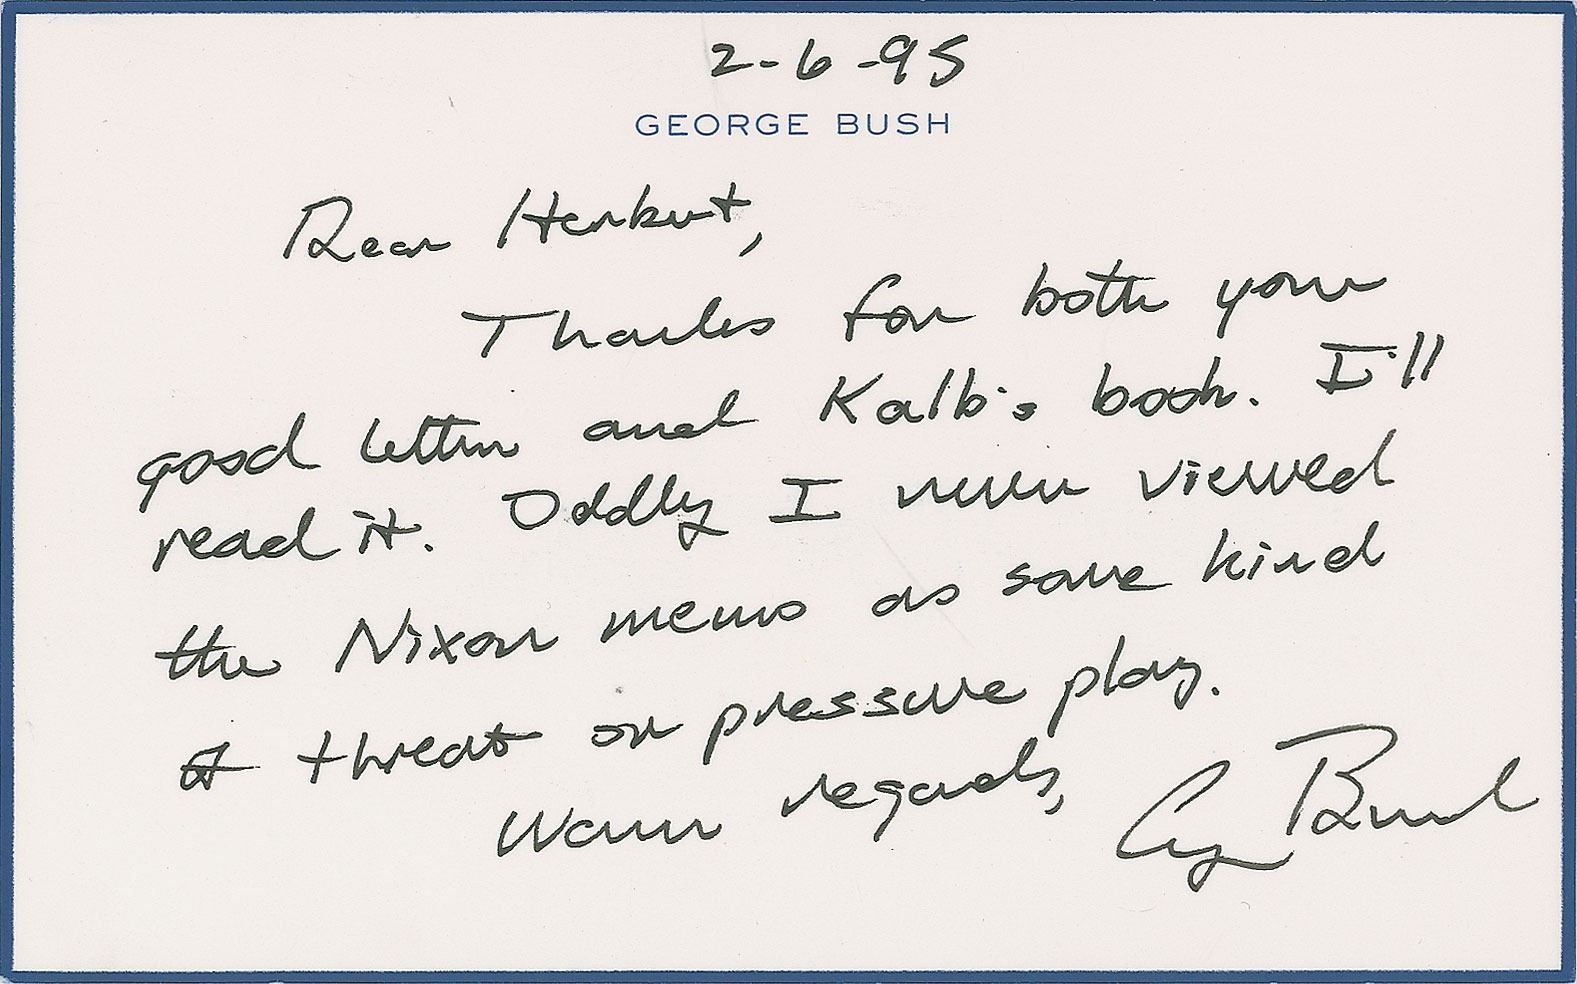 2-6-95
GEORGE BUSH
Dear Herbert,
Thanks for both your
good letter and Kalb's book. I'll
read it. Oddly I never viewed
the Nixon memo as some kind
of threat or pressure play.
Warm regards,
Gg Bush